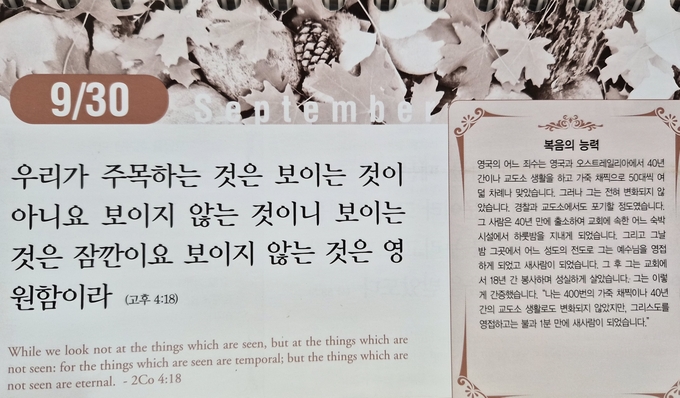 9/30
September
우리가 주목하는 것은 보이는 것이
아니요 보이지 않는 것이니 보이는
것은 잠깐이요 보이지 않는 것은 영
원함이라 (고후 4:18)
While we look not at the things which are seen, but at the things which are
not seen: for the things which are seen are temporal; but the things which are
not seen are eternal. - 2Co 4:18
복음의 능력
영국의 어느 죄수는 영국과 오스트레일리아에서 40년
간이나 교도소 생활을 하고 가죽 채찍으로 50대씩 여
덟 차례나 맞았습니다. 그러나 그는 전혀 변화되지 않
았습니다. 경찰과 교도소에서도 포기할 정도였습니다.
그 사람은 40년 만에 출소하여 교회에 속한 어느 숙박
시설에서 하룻밤을 지내게 되었습니다. 그리고 그날
밤 그곳에서 어느 성도의 전도로 그는 예수님을 영접
하게 되었고 새사람이 되었습니다. 그 후 그는 교회에
서 18년 간 봉사하며 성실하게 살았습니다. 그는 이렇
게 간증했습니다. "나는 400번의 가죽 채찍이나 40년
간의 교도소 생활로도 변화되지 않았지만, 그리스도를
영접하고는 불과 1분 만에 새사람이 되었습니다."